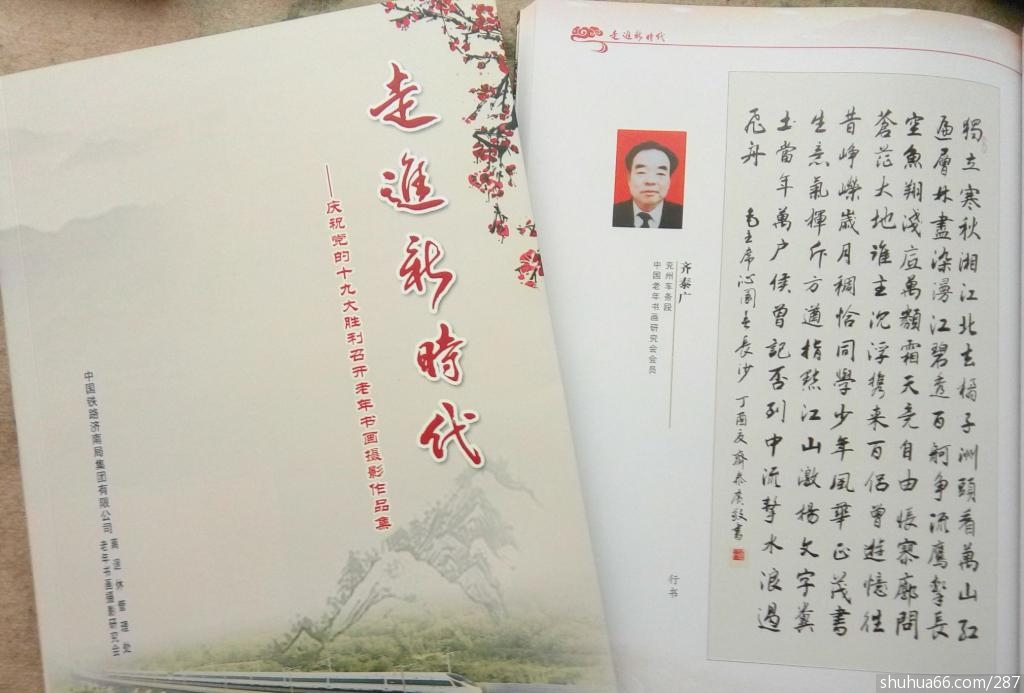 走進新時代
——庆祝党的十九大胜利召开老年书画摄影作品集
中国铁路济南局集团有限公司
离退休管理处
老年书画摄影研究会
走進新時代
齐泰广
兖州车务段
中国老年书画研究会会员
行书
獨立寒秋湘江北去橘子洲頭看萬山红
遍層林盡染漫江碧透百舸争流鷹擊長
空魚翔淺底萬類霜天竞自由悵寥廓問
蒼茫大地誰主沉浮携来百侣曾遊憶往
昔崢嶸歲月稠恰同學少年風華正茂書
生意氣揮斥方遒指點江山激揚文字糞
土當年萬户侯曾記否到中流擊水浪遏
飛舟 毛主席沁園春長沙 丁酉夏齊泰廣敬書
shuhua66.com/287